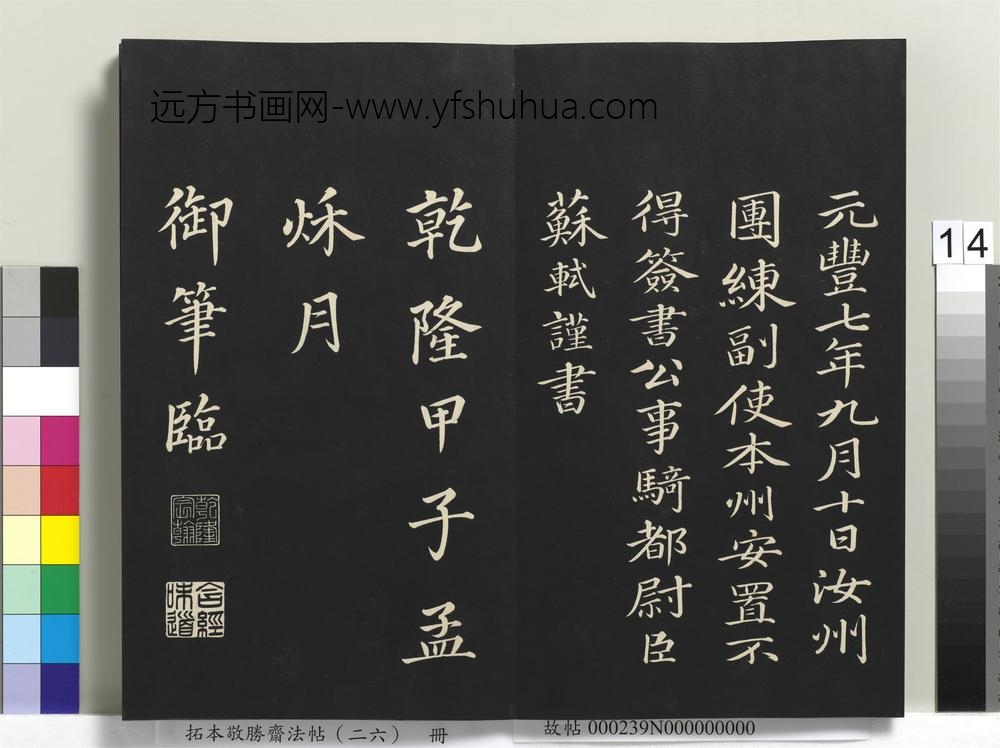 远方书画网-www.yfshuhua.com
元豐七年九月十日汝州
團練副使本州安置不
得簽書公事騎都尉臣
蘇軾謹書
乾隆甲子孟
秌月
御筆臨
乾隆
宸翰
含經
味道
14
拓本敬勝齋法帖（二六） 冊
故帖 000239N000000000